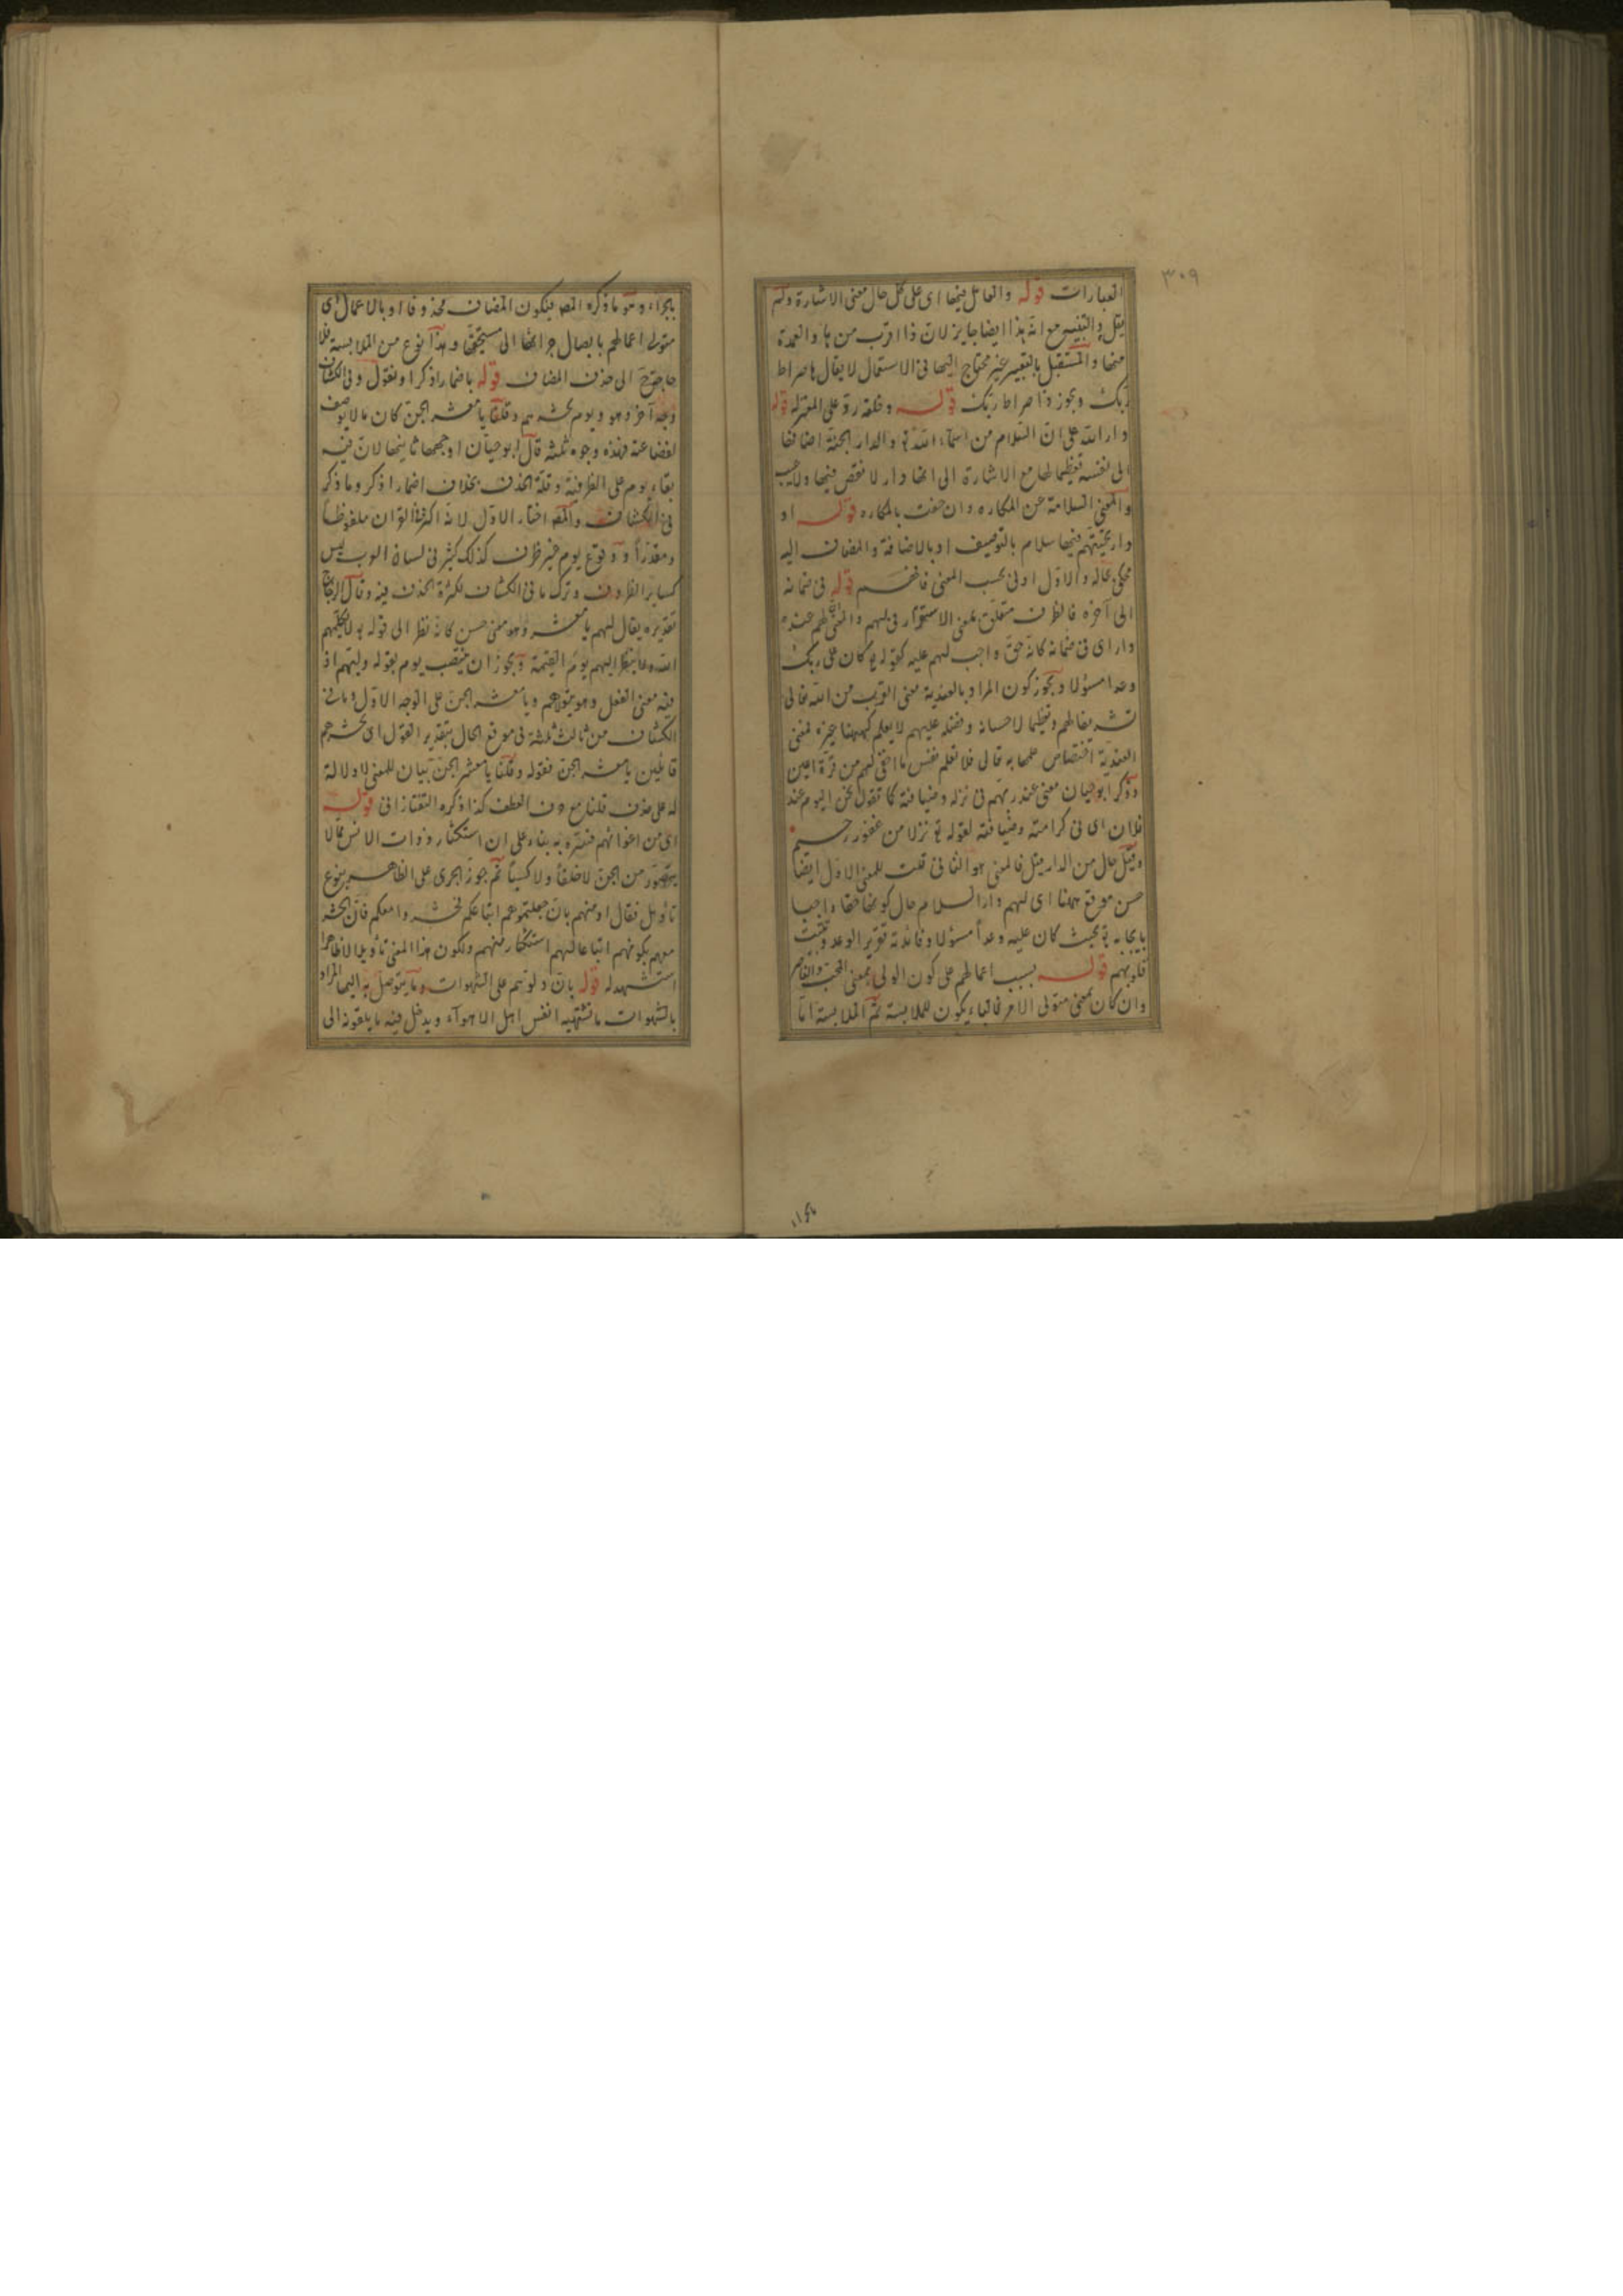 ٣٠٩
العبارات قوله والعامل فيها اى على كل حال معنى الاشارة ولم
يقل والتنبيه مع انه هذا ايضا جايز لان ذا اقرب من ها والعمدة
منها والمستقبل بالتعبير غير محتاج اليها فى الاستعمال لا يقال ها صراط
ربك ويجوز ذا صراط ربك قوله وخلقه رد على المعتزلة قوله
دار الله على ان السلام من اسماء الله تع والدار الجنة اضافها
الى نفسه تعظيما لها مع الاشارة الى انها دار لا نقص فيها ولا عيب
والمعنى السلامة عن المكاره وان حفت بالمكاره قوله او
دار تحيتهم فيها سلام بالتوصيف او بالاضافة والمضاف اليه
محكى بحاله والاول اولى بحسب المعنى فافهم قوله فى ضمانه
الى آخره فالظرف متعلق بمعنى الاستقرار فى لهم والمعنى لهم عنده
دار اى فى ضمانه كانه حق واجب لهم عليه كقوله تع كان على ربك
وعدا مسؤلا ويجوز كون المراد بالعندية معنى القرب من الله تعالى
تشريفا لهم وتعظيما لاحسانه وفضله عليهم لا يعلم كنهها غيره لمعنى
العندية اختصاص علمها به قال فلا تعلم نفس ما اخفى لهم من قرة اعين
وذكر ابو حيان معنى عند ربهم فى نزله وضيافته كما تقول نحن اليوم عند
فلان اى فى كرامته وضيافته لقوله تع نزلا من غفور رحيم
وقيل حال من الدار مثل فالمعنى هو الثانى قلت للمعنى الاول ايضا
حسن موقع ههنا اى لهم دار السلام حال كونها حقا واجبا
بايجابه تع بحيث كان عليه وعدا مسؤلا وفائدته تقرير الوعد وتثبيت
قلوبهم قوله بسبب اعمالهم على كون الولى بمعنى المحب والناصر
وان كان بمعنى متولى الامر فالباء يكون للملابسة ثم الملابسة اما
بالجزاء وهو ما ذكره المص فيكون المضاف محذوفا او بالاعمال اى
متولى اعمالهم بايصال جزائها الى مستحقها وهذا نوع من الملابسة فلا
حاجة ح الى حذف المضاف قوله باضمار اذكر او نقول وفى الكشاف
وجه آخر وهو ويوم نحشرهم وقلنا يا معشر الجن كان ما لا يوصف
لفظاعته فهذه وجوه ثلثة قال ابو حيان اوجهها ثانيها لان فيه
بقاء يوم على الظرفية وقلة الحذف بخلاف اضمار اذكر وما ذكر
فى الكشاف والمص اختار الاول لانه اكثر فى القران ملفوظا
ومقدرا ووقوع يوم خير ظرف كذلك كثير فى لسان العرب ليس
كساير الظروف وترك ما فى الكشاف لكثرة الحذف فيه وقال الزجاج
تقديره يقال لهم يا معشر وهو معنى حسن كانه نظر الى قوله تع لا يكلمهم
الله ولا ينظر اليهم يوم القيمة ويجوز ان ينتصب يوم بقوله وليهم اذ
فيه معنى الفعل وهو يتولاهم ويا معشر الجن على الوجه الاول وما فى
الكشاف من ثالث ثلثة فى موقع الحال بتقدير القول اى نحشرهم
قايلين يا معشر الجن فقوله وقلنا يا معشر الجن بيان للمعنى لا دلالة
له على حذف قلنا مع حرف العطف كذا ذكره التفتازانى قوله
اى من اغوائهم فسره به بناء على ان استكثار ذوات الانس مما لا
يتصور من الجن لا خلقا ولا كسبا ثم جوز الجرى على الظاهر بنوع
تأويل فقال او منهم بان جعلتموهم اتباعكم فحشروا معكم فان الحشر
معهم بكونهم اتباعا لهم استكثار منهم ولكون هذا المعنى تأويلا لا ظاهرا
استشهد له قوله بان دلوهم على الشهوات وما يتوصل به اليها المراد
بالشهوات ما تشتهيه انفس اهل الاهواء ويدخل فيه ما يلقونه الى